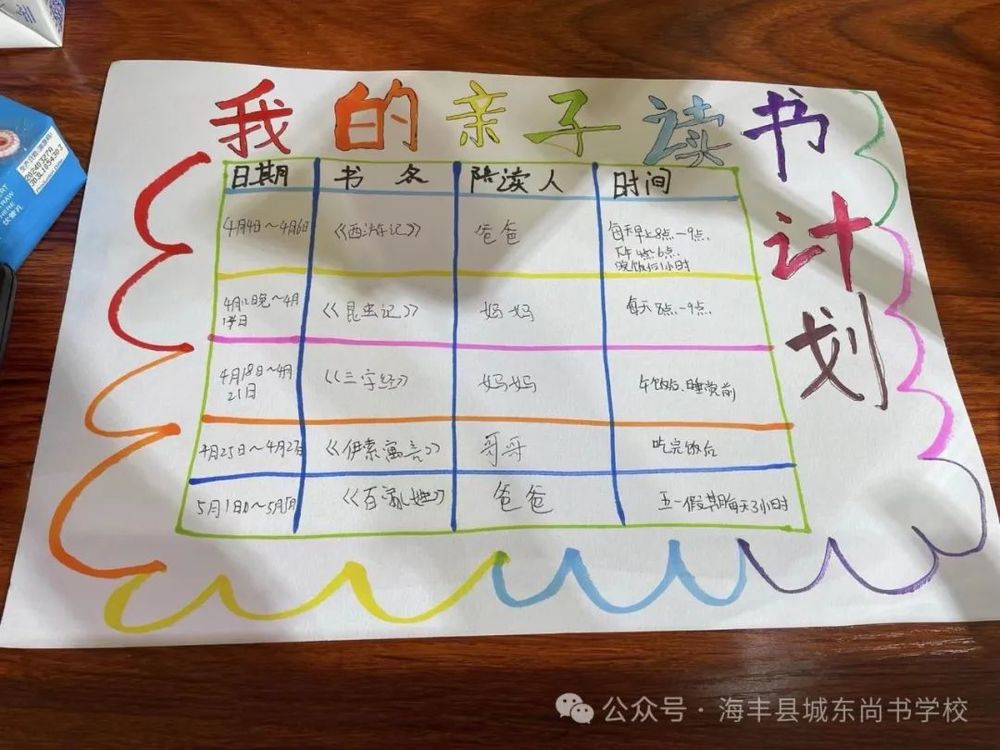 我的亲子读书计划
日期 书名 陪读人 时间
4月4日~4月6日 《西游记》 爸爸 每天早上8点-9点
晚饭后1小时
《昆虫记》 妈妈 每天8点-9点
4月18日~4月21日 《三字经》 妈妈 午饭后、睡觉前
4月25日~4月27日 《伊索寓言》 哥哥 吃完饭后
《百家姓》 爸爸 五一假期每天3小时
公众号·海丰县城东尚书学校